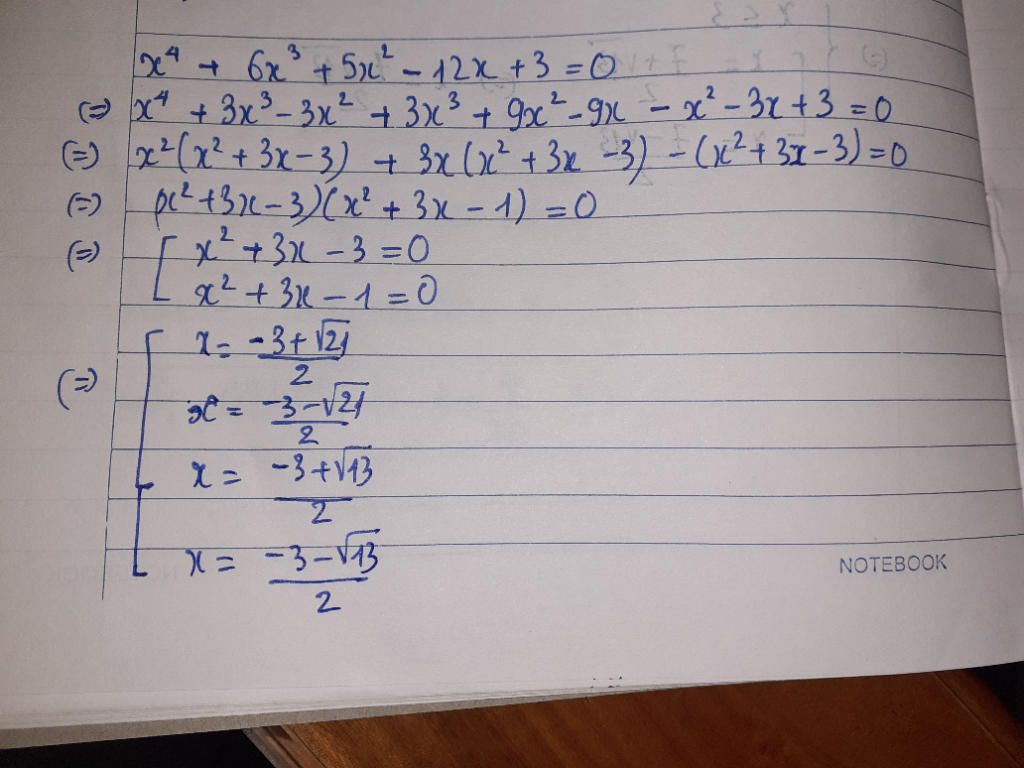 x⁴ + 6x³ + 5x² - 12x + 3 = 0
(=) x⁴ + 3x³ - 3x² + 3x³ + 9x² - 9x - x² - 3x + 3 = 0
(=) x²(x² + 3x - 3) + 3x(x² + 3x - 3) - (x² + 3x - 3) = 0
(=) (x² + 3x - 3)(x² + 3x - 1) = 0
(=) [ x² + 3x - 3 = 0
x² + 3x - 1 = 0
(=) [ x = (-3 + √21)/2
x = (-3 - √21)/2
x = (-3 + √13)/2
x = (-3 - √13)/2
NOTEBOOK